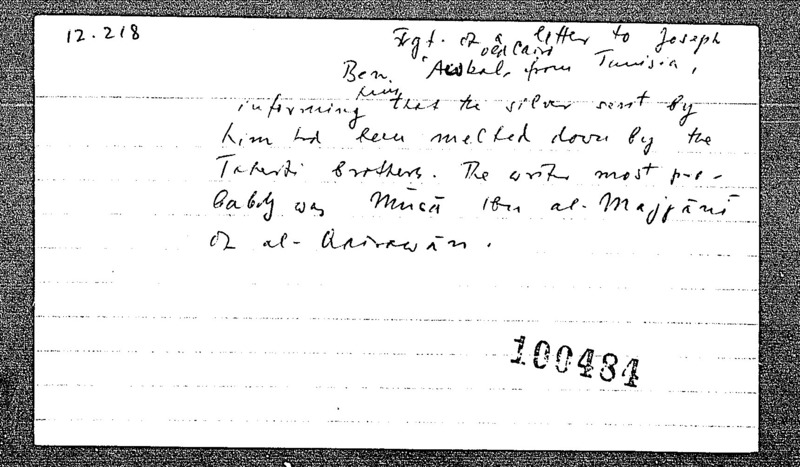 12.218
Frgt. of a letter to Joseph
old Cairo
Ben 'Awkal, from Tunisia,
him
informing that the silver sent by
him had been melted down by the
Taherti brothers. The writer most pro-
babely was Mūsā Ibn al-Majjānī
of al-Qairawān.
100484